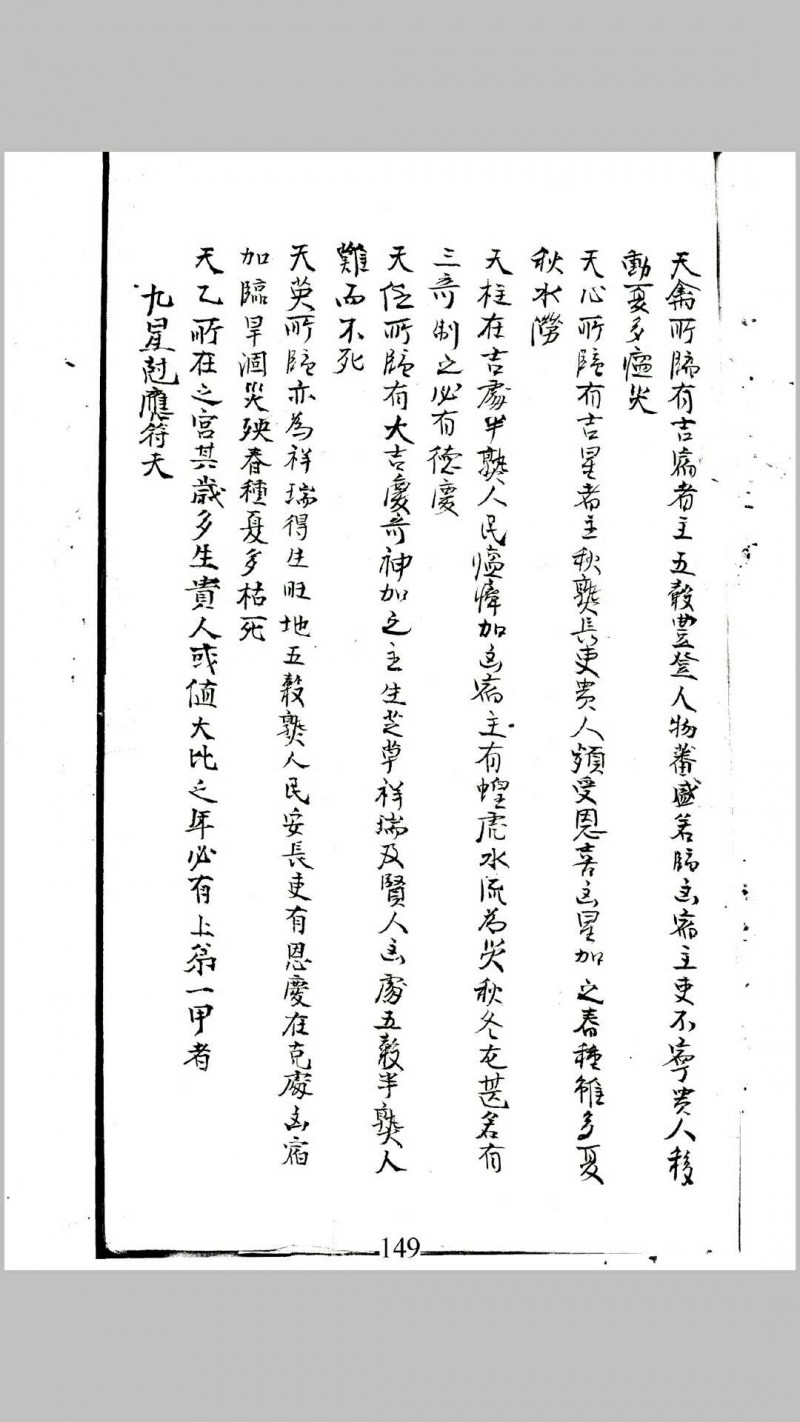 天禽所臨有吉宿者主五穀豊登人物蕃盛若臨凶宿主吏不寧贵人移
動夏多瘟災
天心所臨有吉星者主秋熟長吏贵人頻受恩喜凶星加之春種雖多夏
秋水澇
天柱在吉處半熟人民瘟瘴加凶宿主有蝗虎水流為災秋冬尤甚若有
三奇制之必有德慶
天任所臨有大吉慶奇神加之主生芝草祥瑞及賢人凶處五穀半熟人
難而不死
天英所臨亦為祥瑞得生旺地五穀熟人民安長吏有恩慶在克處凶宿
加臨旱涸災殃春種夏多枯死
天乙所在之宮其歲多生貴人或值大比之年必有上第一甲者
九星尅應符天
149